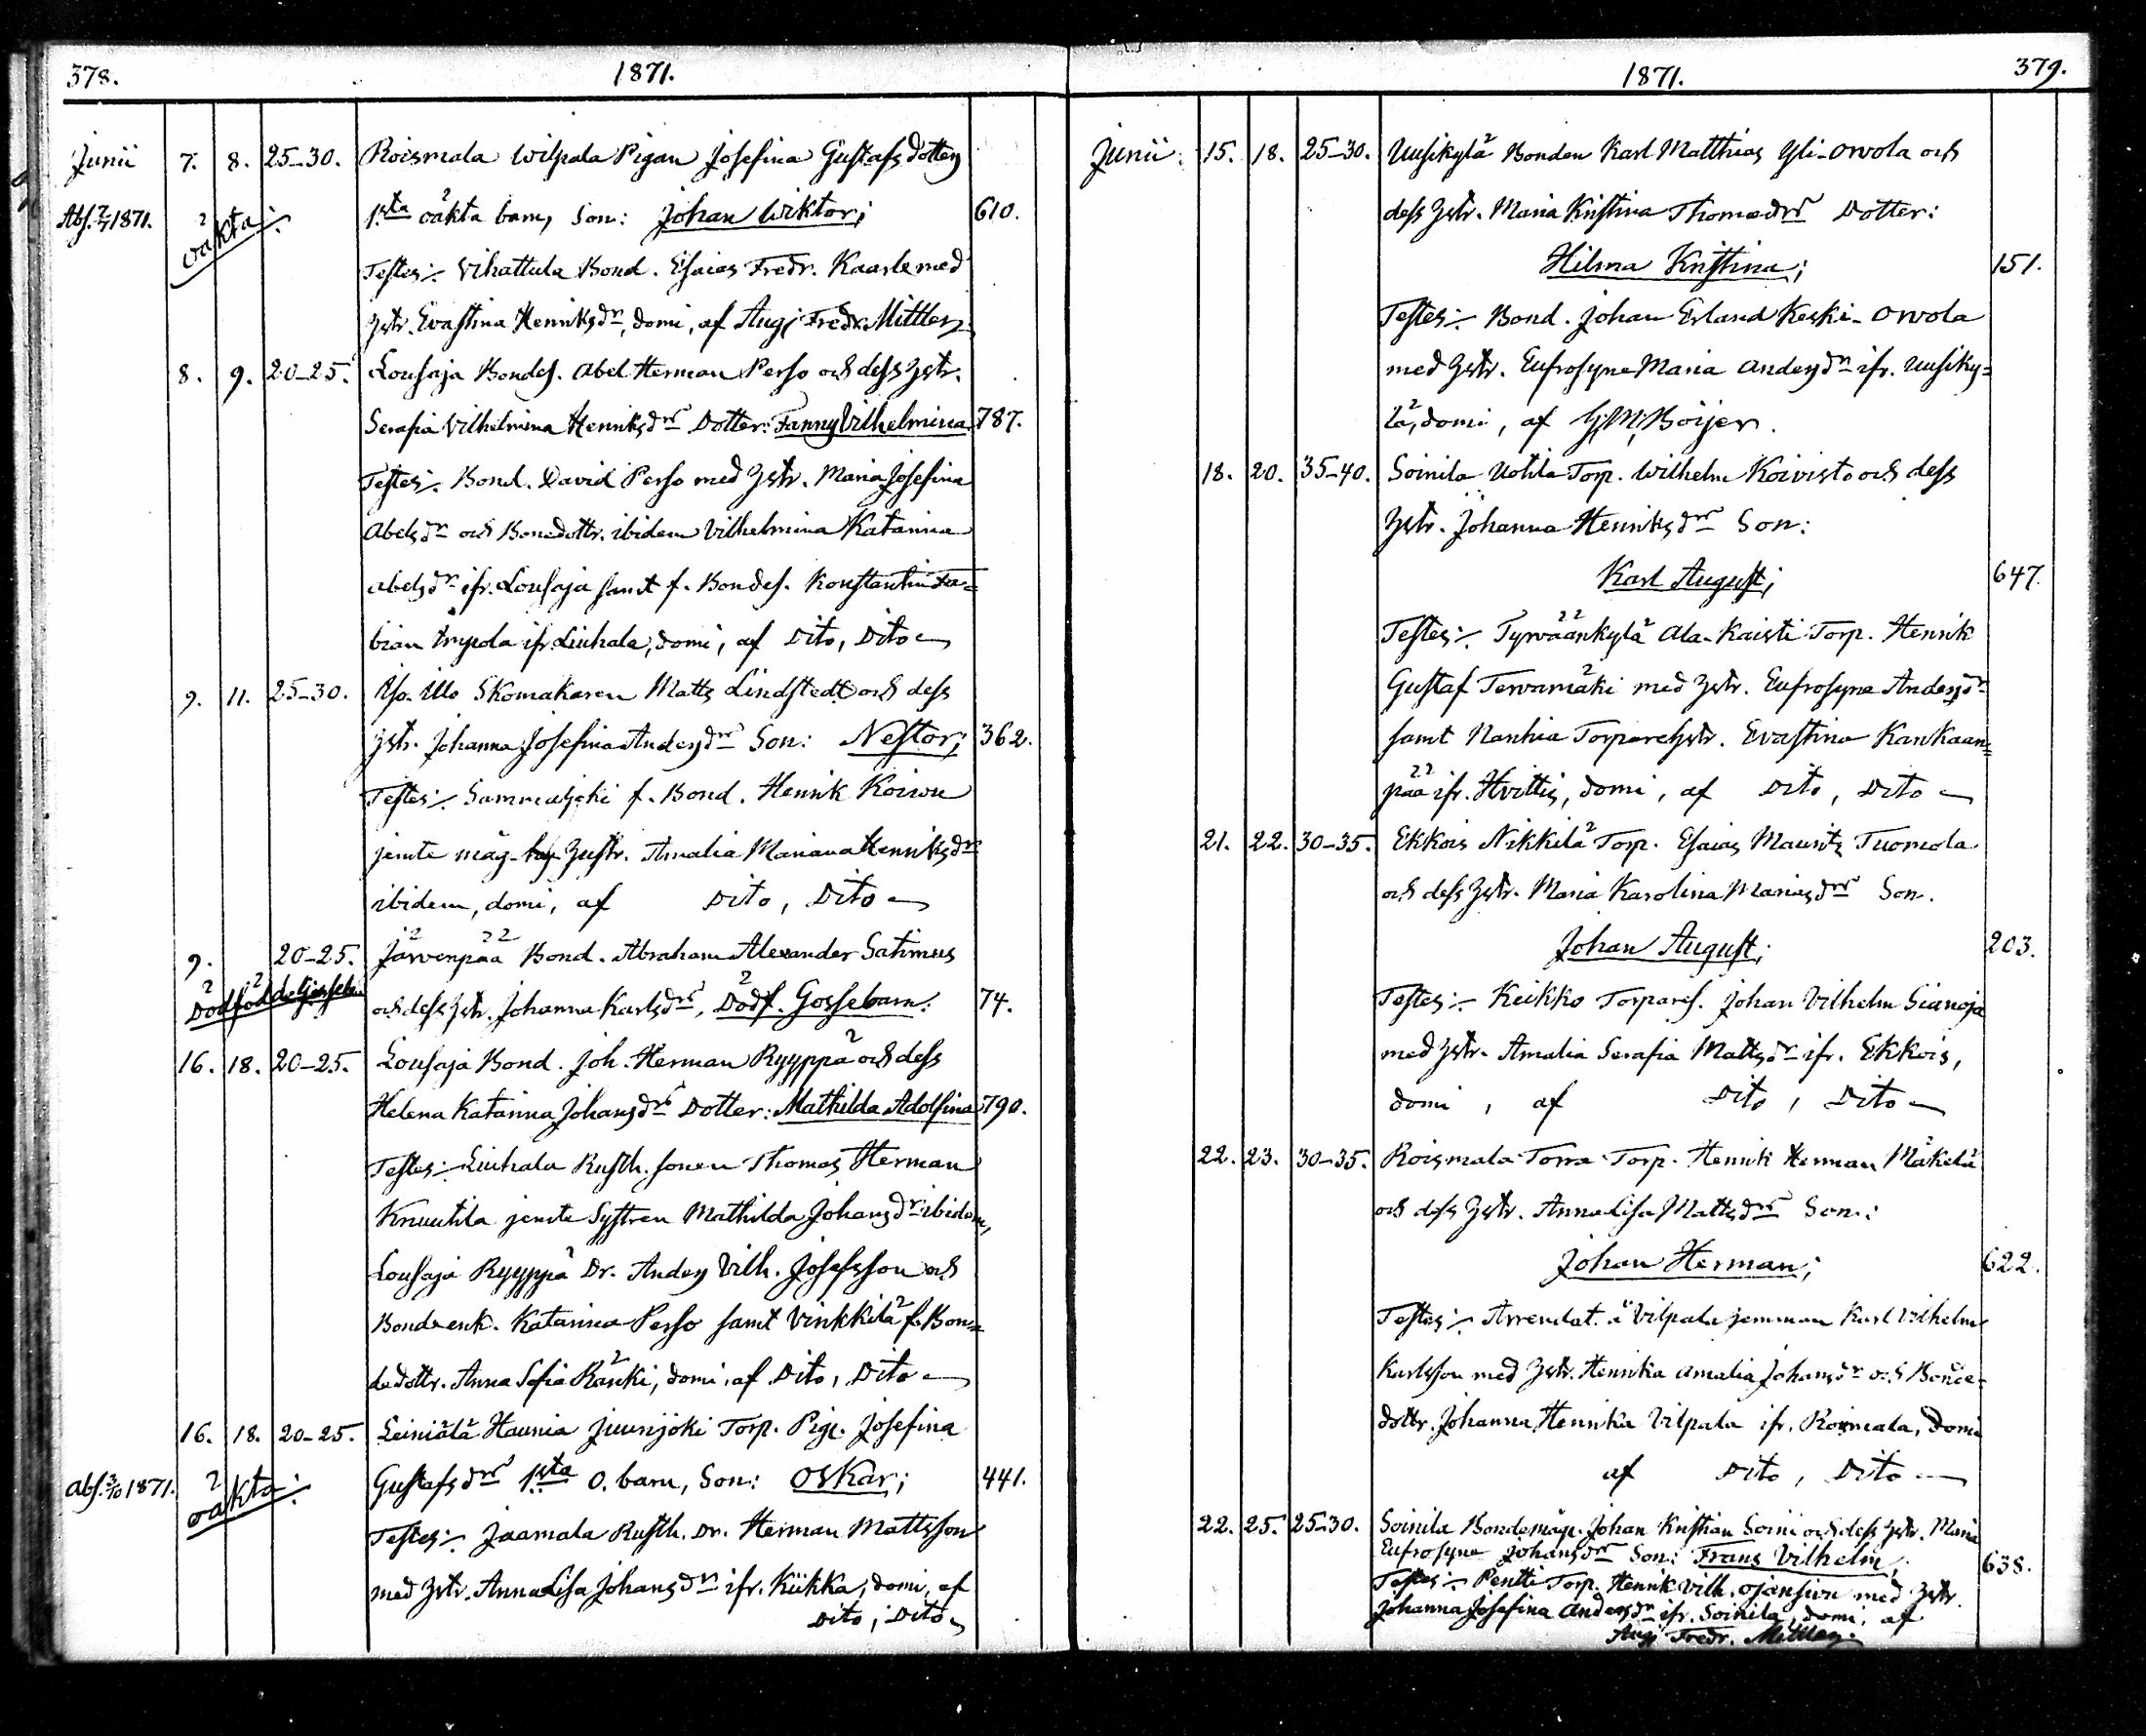 378. 1871.
Junii 7. 8. 25-30. Roismala Wilpala Pigan Josefina Gustafsdotters
Abs. 7/7 1871. oäkta: 1sta oäkta barn, Son: Johan Wiktor; 610.
Testes:- Vihattula Bond. Esaias Fredr. Kaarle med
hstr. Evastina Henriksdr, domi, af Aug. Fredr. Mittler.
8. 9. 20-25. Lousaja Bondes. Abel Herman Perso och dess hstr.
Serafia Vilhelmina Henriksdrs Dotter: Fanny Vilhelmina 787.
Testes:- Bond. David Perso med hstr. Maria Josefina
Abelsdr och Bonedottr. ibidem Vilhelmina Katarina
Abelsdr ifr. Lousaja samt f. Bondes. Konstantin Fa=
bian ifr. Liuhala, domi, af Dito, Dito
9. 11. 25-30. Illo Skomakaren Matts Lindstedt och dess
hstr. Johanna Josefina Andersdrs Son: Nestor; 362.
Testes:- Sammaljoki f. Bond. Henrik Koivu
jemte måg- hustr. Amalia Mariana Henriksdr
ibidem, domi, af Dito, Dito
9. 20-25. Järvenpää Bond. Abraham Alexander Satimus
Dödfödde Gossebn och dess hstr. Johanna Karlsdrs, Dödf. Gossebarn. 74.
16. 18. 20-25. Lousaja Bond. Joh. Herman Ryyppä och dess
Helena Katarina Johansdrs Dotter: Mathilda Adolfina 790.
Testes:- Liuhala Rusth. sonen Thomas Herman
Knuutila jemte Systren Mathilda Johansdr ibidem,
Lousaja Ryyppä Dr. Anders Vilh. Josefsson och
Bondeenk. Katarina Perso samt Vinkkilä f. Bon=
dedottr. Anna Sofia Ränki, domi, af Dito, Dito
16. 18. 20-25. Leiniälä Haunia Juurijoki Torp. Pig. Josefina
abs. 3/10 1871. oäkta: Gustafsdrs 1sta o. barn, Son: Oskar; 441.
Testes:- Jaamala Rusth. Dr. Herman Mattsson
med hstr. Anna Lisa Johansdr ifr. Kiikka, domi, af
Dito, Dito
1871. 379.
Junii. 15. 18. 25-30. Uusikylä Bonden Karl Matthias Yli-Orvola och
dess hstr. Maria Kristina Thomædrs Dotter:
Hilma Kristina; 151.
Testes:- Bond. Johan Erland Keski-Orvola
med hstr. Eufrosyne Maria Andersdr ifr. Uusiky=
lä, domi, af G. M. Boijer.
18. 20. 35-40. Soinila Uotila Torp. Wilhelm Koivisto och dess
hstr. Johanna Henriksdrs Son:
Karl August; 647.
Testes:- Tyrväänkylä Ala-Kaisti Torp. Henrik
Gustaf Tervamäki med hstr. Eufrosyne Andersdr
samt Nanhia Torparehstr. Evastina Kankaan=
pää ifr. Hvittis, domi, af Dito, Dito
21. 22. 30-35. Ekkois Nikkilä Torp. Esaias Mauritz Tuomola
och dess hstr. Maria Karolina Mariasdrs Son.
Johan August; 203.
Testes:- Keikko Torpares. Johan Vilhelm Sianoja
med hstr. Amalia Serafia Mattsdr ifr. Ekkois,
domi, af Dito, Dito
22. 23. 30-35. Roismala Torra Torp. Henrik Herman Mäkelä
och dess hstr. Anna Lisa Mattsdrs Son:
Johan Herman; 622.
Testes:- Arrendat. å Vilpala hemman Karl Vilhelm
Karlsson med hstr. Henrika Amalia Johansdr och Bonde=
dottr. Johanna Henrika Vilpala ifr. Roismala, domi
af Dito, Dito
22. 25. 25-30. Soinila Bondemåg. Johan Kristian Soini och dess hstr. Maria
Eufrosyne Johansdrs Son: Frans Vilhelm; 638.
Testes:- Pentti Torp. Henrik Vilh. Ojansivu med hstr.
Johanna Josefina Andersdr ifr. Soinila, domi, af
Aug. Fredr. Mittler.